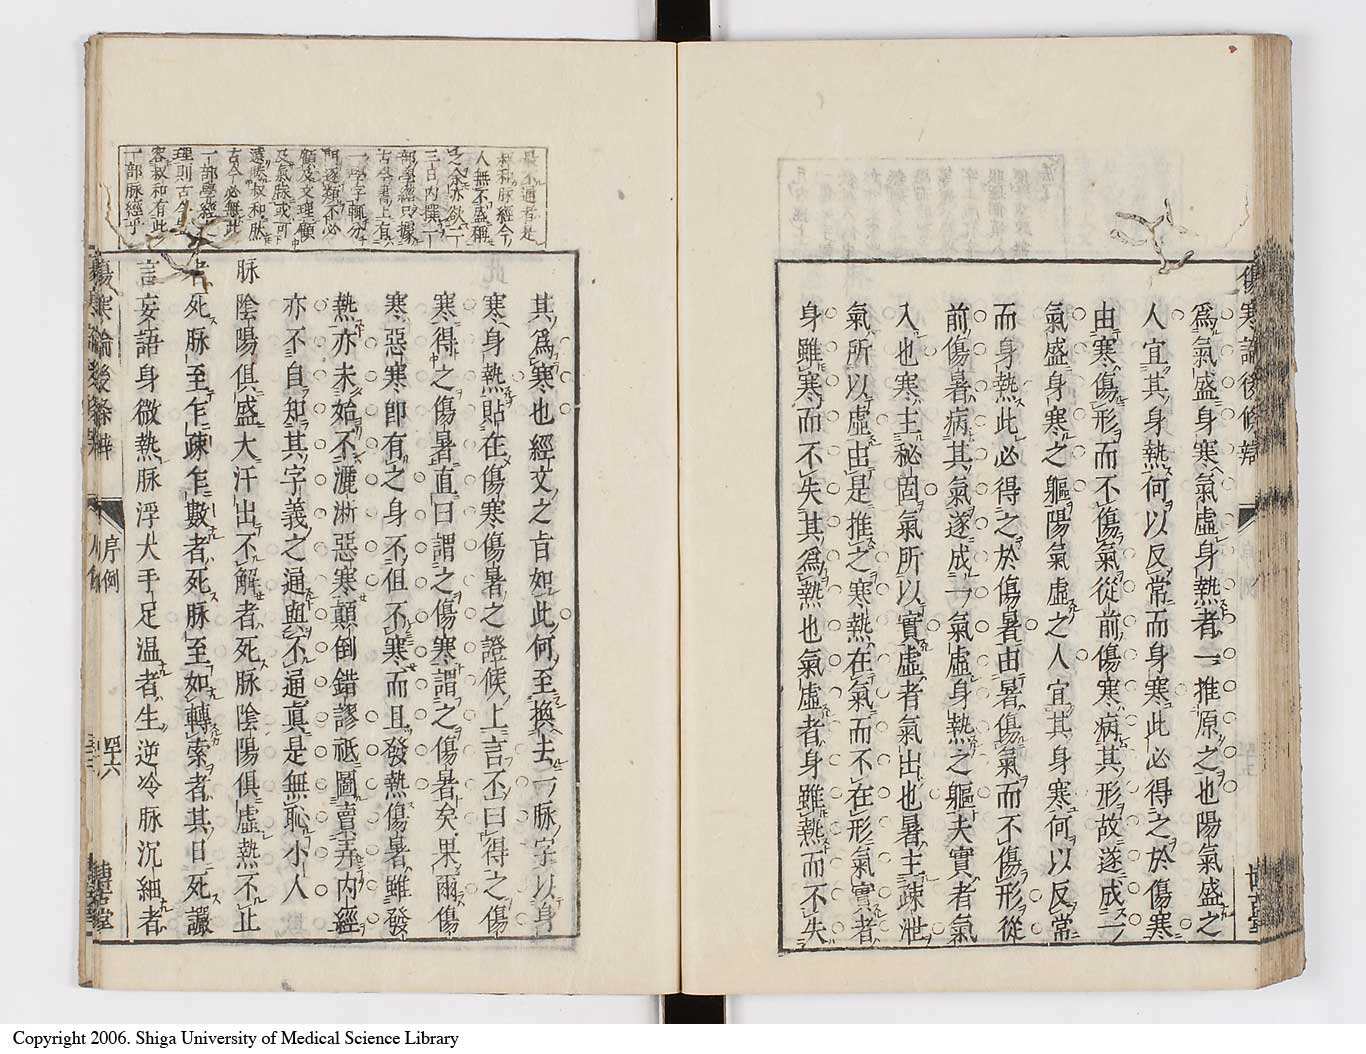 爲氣盛身寒氣虛身熱者一推原之也陽氣盛之
人宜其身熱何以反常而身寒此必得之於傷寒
由寒傷形而不傷氣從前傷寒病其形故遂成一
氣盛身寒之軀陽氣虛之人宜其身寒何以反常
而身熱此必得之於傷暑由暑傷氣而不傷形從
前傷暑病其氣遂成一氣虛身熱之軀夫實者氣
入也寒主秘固氣所以實虛者氣出也暑主疎泄
氣所以虛由是推之寒熱在氣而不在形氣實者
身雖寒而不失其爲熱也氣虛者身雖熱而不失
最不通者是
叔和脉經今
人無不盛稱
之余亦欲一
部學經只據
古今書上有
門逐類不必
顧及文理顧
及氣脉或可
遠勝叔和然
古今必無此
一部學經之
理則古今
容叔和有此
一部脉經乎
其爲寒也經文之旨如此何至換去一脉字以身
寒身熱貼在傷寒傷暑之證候上言不曰得之傷
寒得之傷暑直曰謂之傷寒謂之傷暑矣果爾傷
寒惡寒卽有之身不但不寒而且發熱傷暑雖發
熱亦未始不灑淅惡寒顛倒錯謬祗圖賣弄内經
亦不自知其字義之通與不通眞是無恥小人
脉陰陽俱盛大汗出不解者死脉陰陽俱虛熱不止
者死脉至乍疎乍數者死脉至如轉索者其日死讝
言妄語身微熱脉浮大手足温者生逆冷脉沉細者
傷寒論後條辨
序例
四十六
Copyright 2006. Shiga University of Medical Science Library